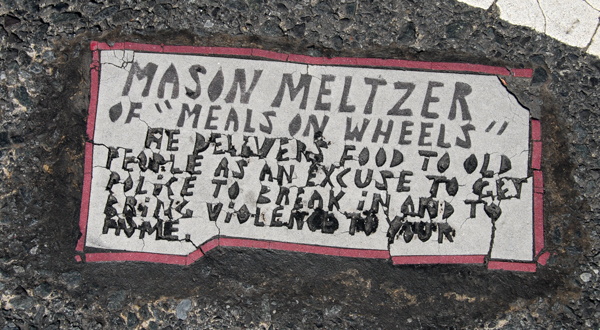 MASON MELTZER
OF "MEALS ON WHEELS"
HE DELIVERS FOOD TO OLD
PEOPLE AS AN EXCUSE TO GET
POLICE TO BREAK IN AND TO
BRING VIOLENCE TO YOUR
HOME.